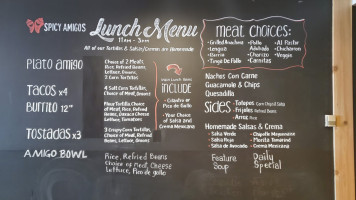 SPICY AMIGOS
Lunch Menu
11am - 3pm
All of our Tortillas & Salsas/Cremas are Homemade
MEAT CHOICES:
•Grilled Machaca
•Lengua
•Barria
•Tinga De Pollo
•Pollo Adovado
•Chorizo
•Carnitas
•Al Pastor
•Chicharron
•Veggie
Plato Amigo
Choice of 2 Meats
Rice, Refried Beans
Lettuce, Onions,
3 Corn Tortillas
Tacos x4
4 Soft Corn Tortillas,
Choice of Meat,
Onions & Cilantro
Burrito 12"
Flour Tortilla, Choice
of Meat, Rice, Refried
Beans, Oaxaca Cheese
Lettuce, Tomatoes
Tostadas x3
3 Crispy Corn Tortillas,
Choice of Meat, Refried
Beans, Lettuce, Onions
AMIGO BOWL
Rice, Refried Beans
Choice of Meat, Cheese
Lettuce, Pico de gallo
LUNCH INCLUDE
•Cilantro or
Pico de Gallo
•Your Choice
of Salsa and
Crema Mexicana
Nachos Con Carne
Guacamole & Chips
Quesadilla
Sides
•Totopos Corn Chips & Salsa
•Frijoles Refried Beans
•Arroz Rice
Homemade Salsas & Cremas
•Salsa Verde
•Salsa Roja
•Salsa de Avocado
•Chipotle Mayonnaise
•Morita Tamarind
•Crema Mexicana
Feature Soup
Daily Special